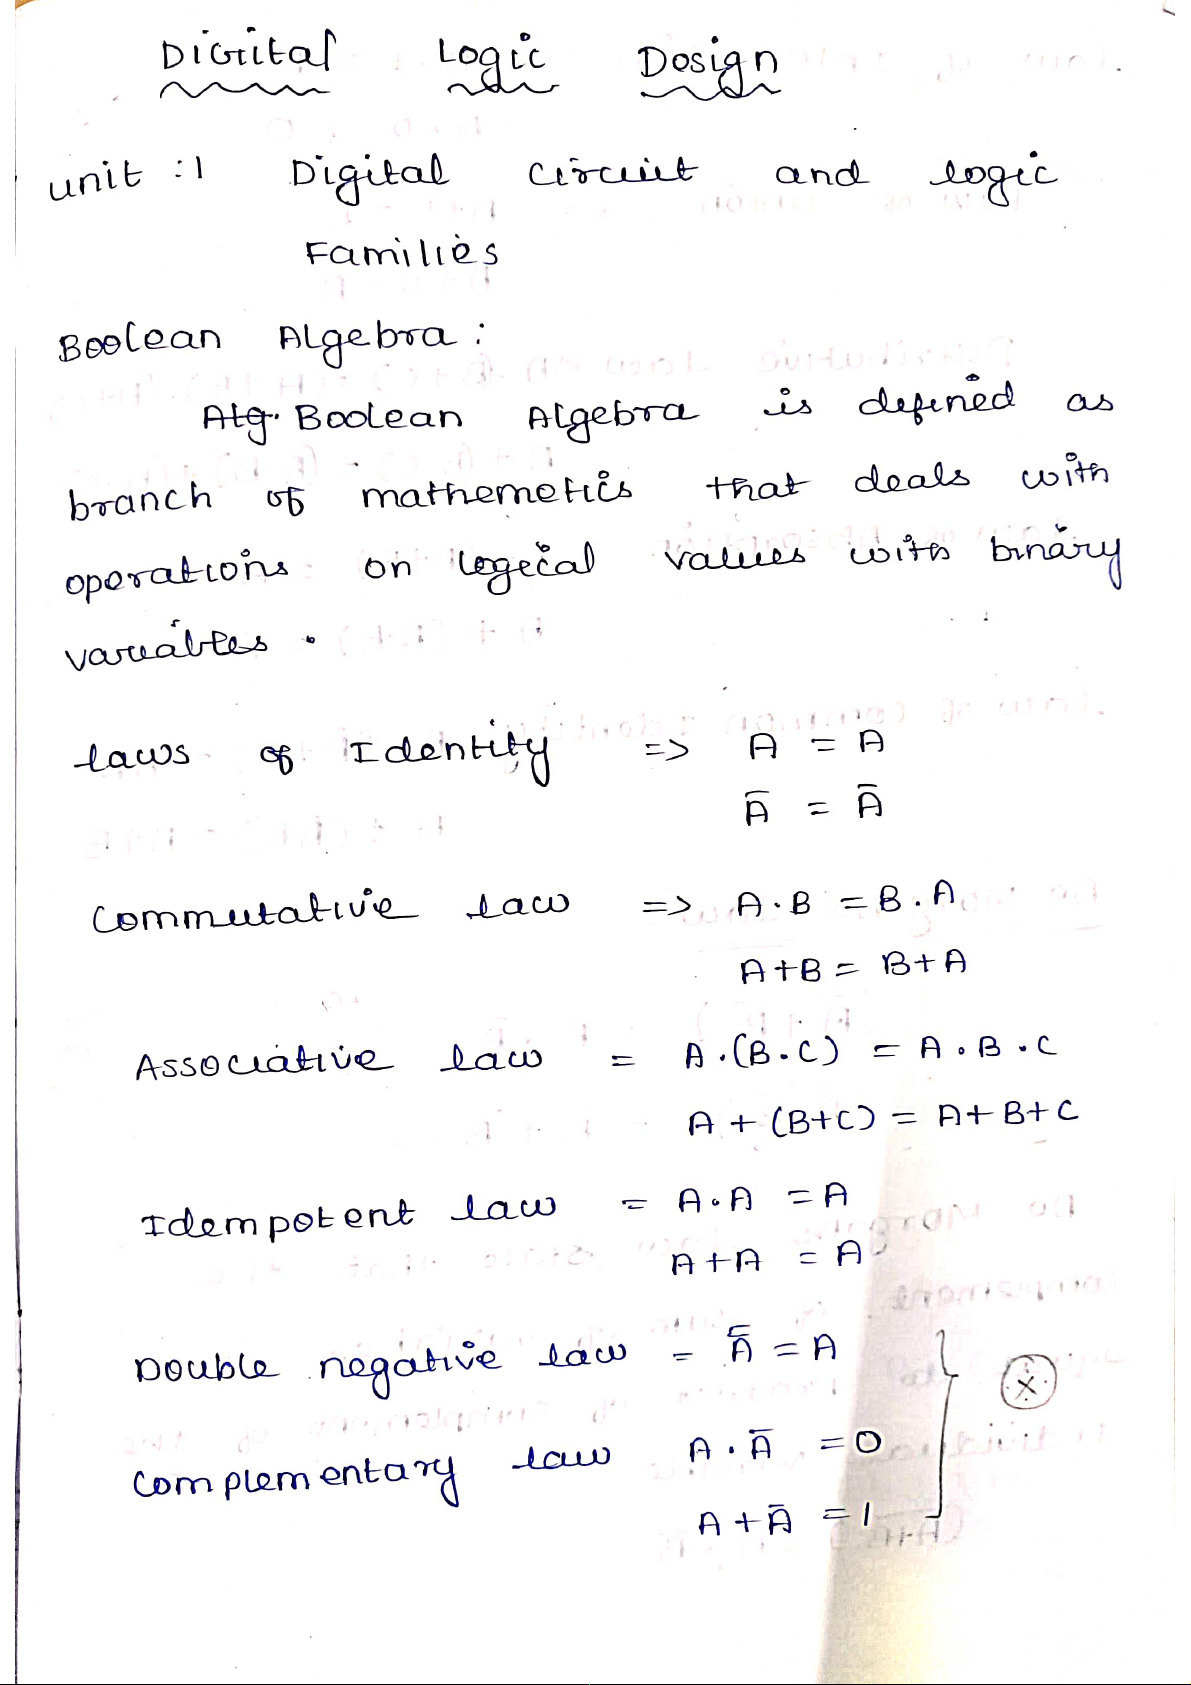 Digital Logic Dosign
unit :1 Digital circuit and logic
Families
Boolean Algebra :
Alg. Boolean Algebra is defined as
branch of mathemetics that deals with
operations on logecal values with binary
variables .
laws of Identity => A = A
Ā = Ā
Commutative law => A . B = B . A
A + B = B + A
Associative law = A . (B . C) = A . B . C
A + (B+C) = A + B + C
Idempotent law = A . A = A
A + A = A
Double negative law = A̿ = A
Complementary law A . Ā = 0
A + Ā = 1